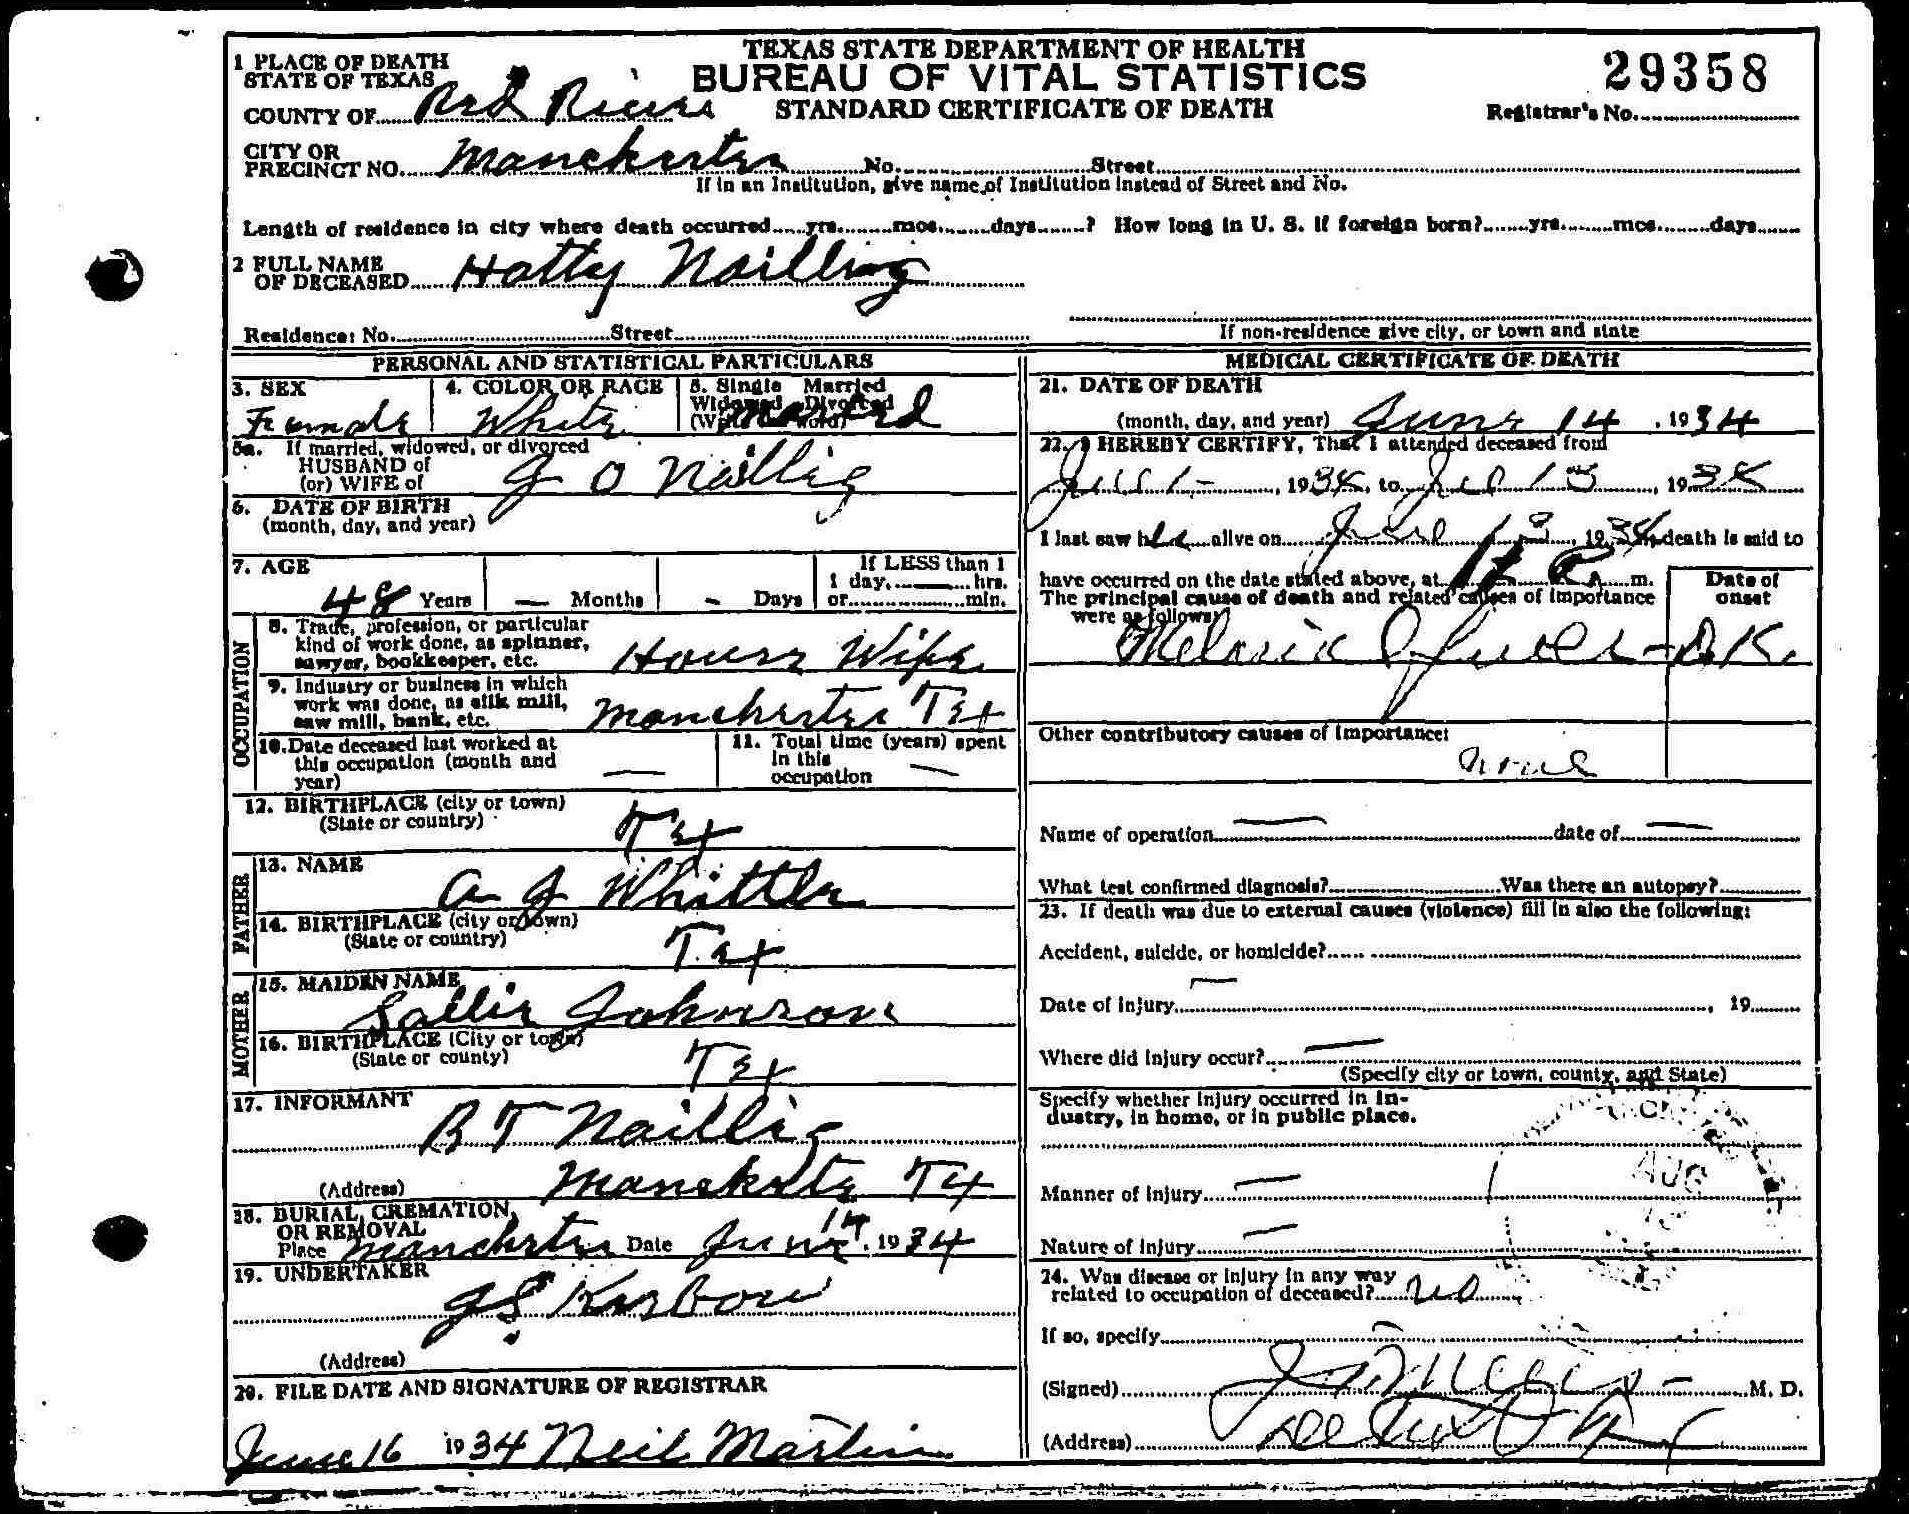 TEXAS STATE DEPARTMENT OF HEALTH
BUREAU OF VITAL STATISTICS
STANDARD CERTIFICATE OF DEATH
29358
Registrar's No.
1 PLACE OF DEATH
STATE OF TEXAS
COUNTY OF Red River
CITY OR
PRECINCT NO. Manchester No. Street
If in an Institution, give name of Institution instead of Street and No.
Length of residence in city where death occurred yrs. mos. days ? How long in U. S. if foreign born? yrs. mos. days
2 FULL NAME
OF DECEASED Hatty Nailling
Residence: No. Street
If non-residence give city, or town and state
PERSONAL AND STATISTICAL PARTICULARS
3. SEX
Female
4. COLOR OR RACE
White
5. Single Married
Widowed Divorced
Married
5a. If married, widowed, or divorced
HUSBAND of
(or) WIFE of
J O Naillig
6. DATE OF BIRTH
(month, day, and year)
7. AGE
48 Years — Months - Days
If LESS than 1
1 day, hrs.
or min.
OCCUPATION
8. Trade, profession, or particular
kind of work done, as spinner,
sawyer, bookkeeper, etc. House Wife
9. Industry or business in which
work was done, as silk mill,
saw mill, bank, etc. Manchester Tex
10. Date deceased last worked at
this occupation (month and
year) —
11. Total time (years) spent
in this
occupation —
12. BIRTHPLACE (city or town)
(State or country)
Tex
FATHER
13. NAME
A J Whittle
14. BIRTHPLACE (city or town)
(State or country)
Tex
MOTHER
15. MAIDEN NAME
Sallie Johnson
16. BIRTHPLACE (City or town)
(State or county)
Tex
17. INFORMANT
B T Naillig
(Address) Manchester Tex
18. BURIAL, CREMATION,
OR REMOVAL
Place Manchester Date June 14, 1934
19. UNDERTAKER
(Address)
20. FILE DATE AND SIGNATURE OF REGISTRAR
June 16 1934 Neil Martin
MEDICAL CERTIFICATE OF DEATH
21. DATE OF DEATH
(month, day, and year) June 14, 1934
22. I HEREBY CERTIFY, That I attended deceased from
1934, to 13, 1934
I last saw h alive on 13, 1934, death is said to
have occurred on the date stated above, at m.
The principal cause of death and related causes of importance
were as follows:
Date of
onset
D.K.
Other contributory causes of importance:
None
Name of operation — date of —
What test confirmed diagnosis? Was there an autopsy?
23. If death was due to external causes (violence) fill in also the following:
Accident, suicide, or homicide?
Date of injury — , 19
Where did injury occur? —
(Specify city or town, county, and State)
Specify whether injury occurred in in-
dustry, in home, or in public place.
AUG
Manner of injury —
Nature of injury —
24. Was disease or injury in any way
related to occupation of deceased? no
If so, specify
(Signed) M. D.
(Address)